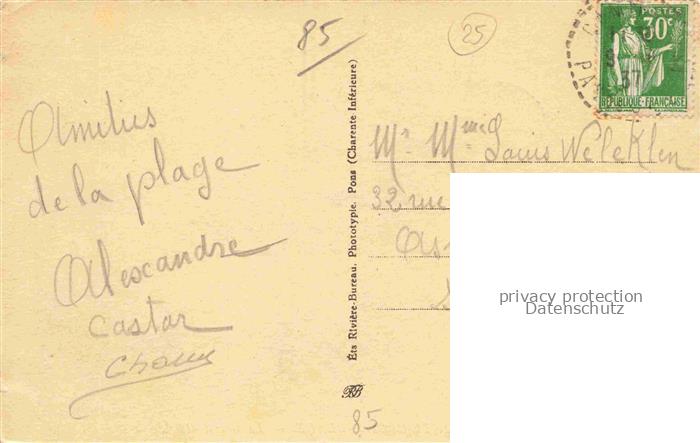 85
25
POSTES
30c
37
REPUBLIQUE FRANÇAISE
Amitiés
de la plage
Alexandre
Castar
Ets Rivière-Bureau. Phototypie. Pons (Charente Inférieure)
RB
Mr Mme Louis Weleklen
32, rue
privacy protection
Datenschutz
85